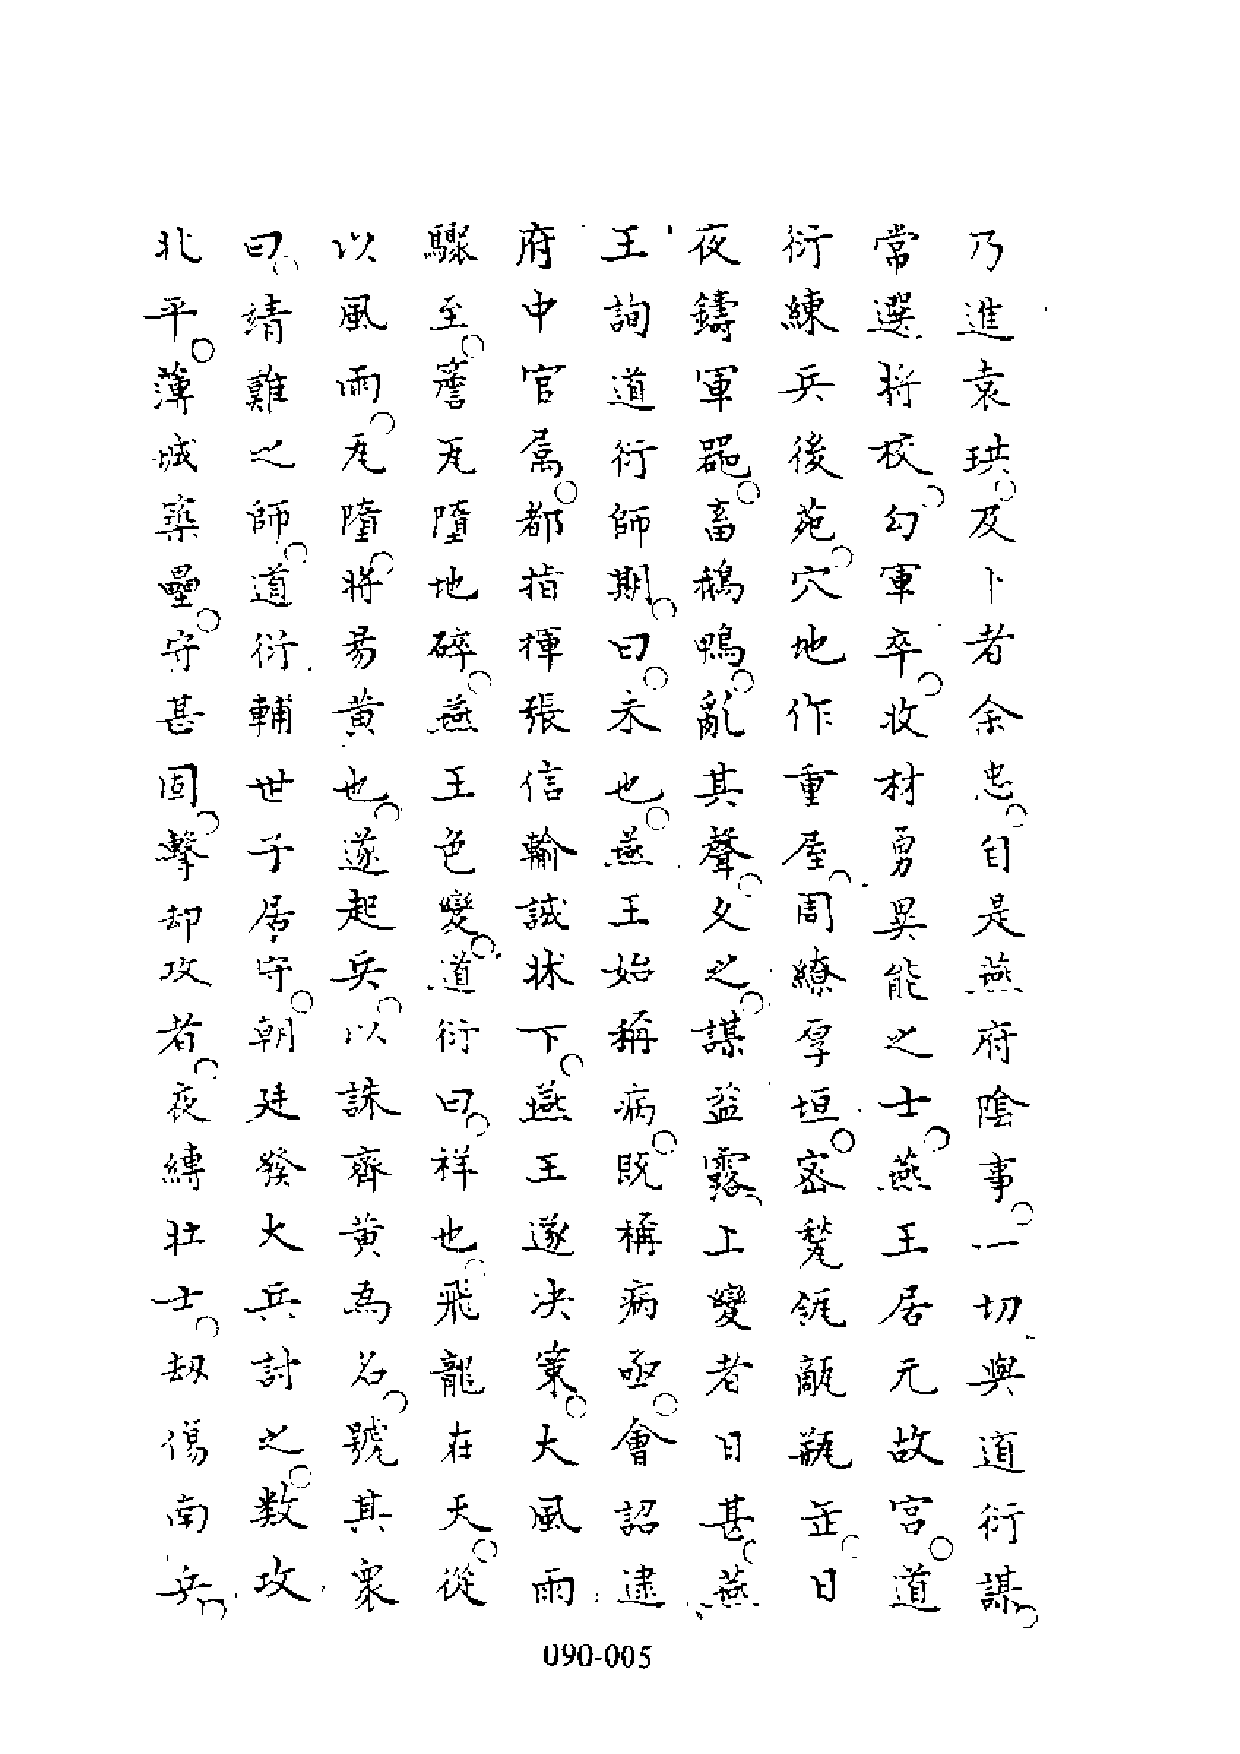 乃進袁珙及卜者余忠自是燕府陰事一切與道衍謀
常選將校勾軍卒收材勇異能之士燕王居元故宮道
衍練兵後苑穴地作重屋周繚厚垣密甃瓴甋瓶缶日
夜鑄軍器畜鵝鴨亂其聲久之謀益露上變者日甚燕
王詢道衍師期曰未也燕王始稱病既稱病亟會詔逮
府中官屬都指揮張信輸誠牀下燕王遂决策大風雨
驟至簷瓦墮地碎燕王色變道衍曰祥也飛龍在天從
以風雨瓦墮將易黄也遂起兵以誅齊黄為名號其衆
曰靖難之師道衍輔世子居守朝廷發大兵討之数攻
北平薄城築壘守甚固擊却攻者夜縛壯士刼傷南兵
090-005